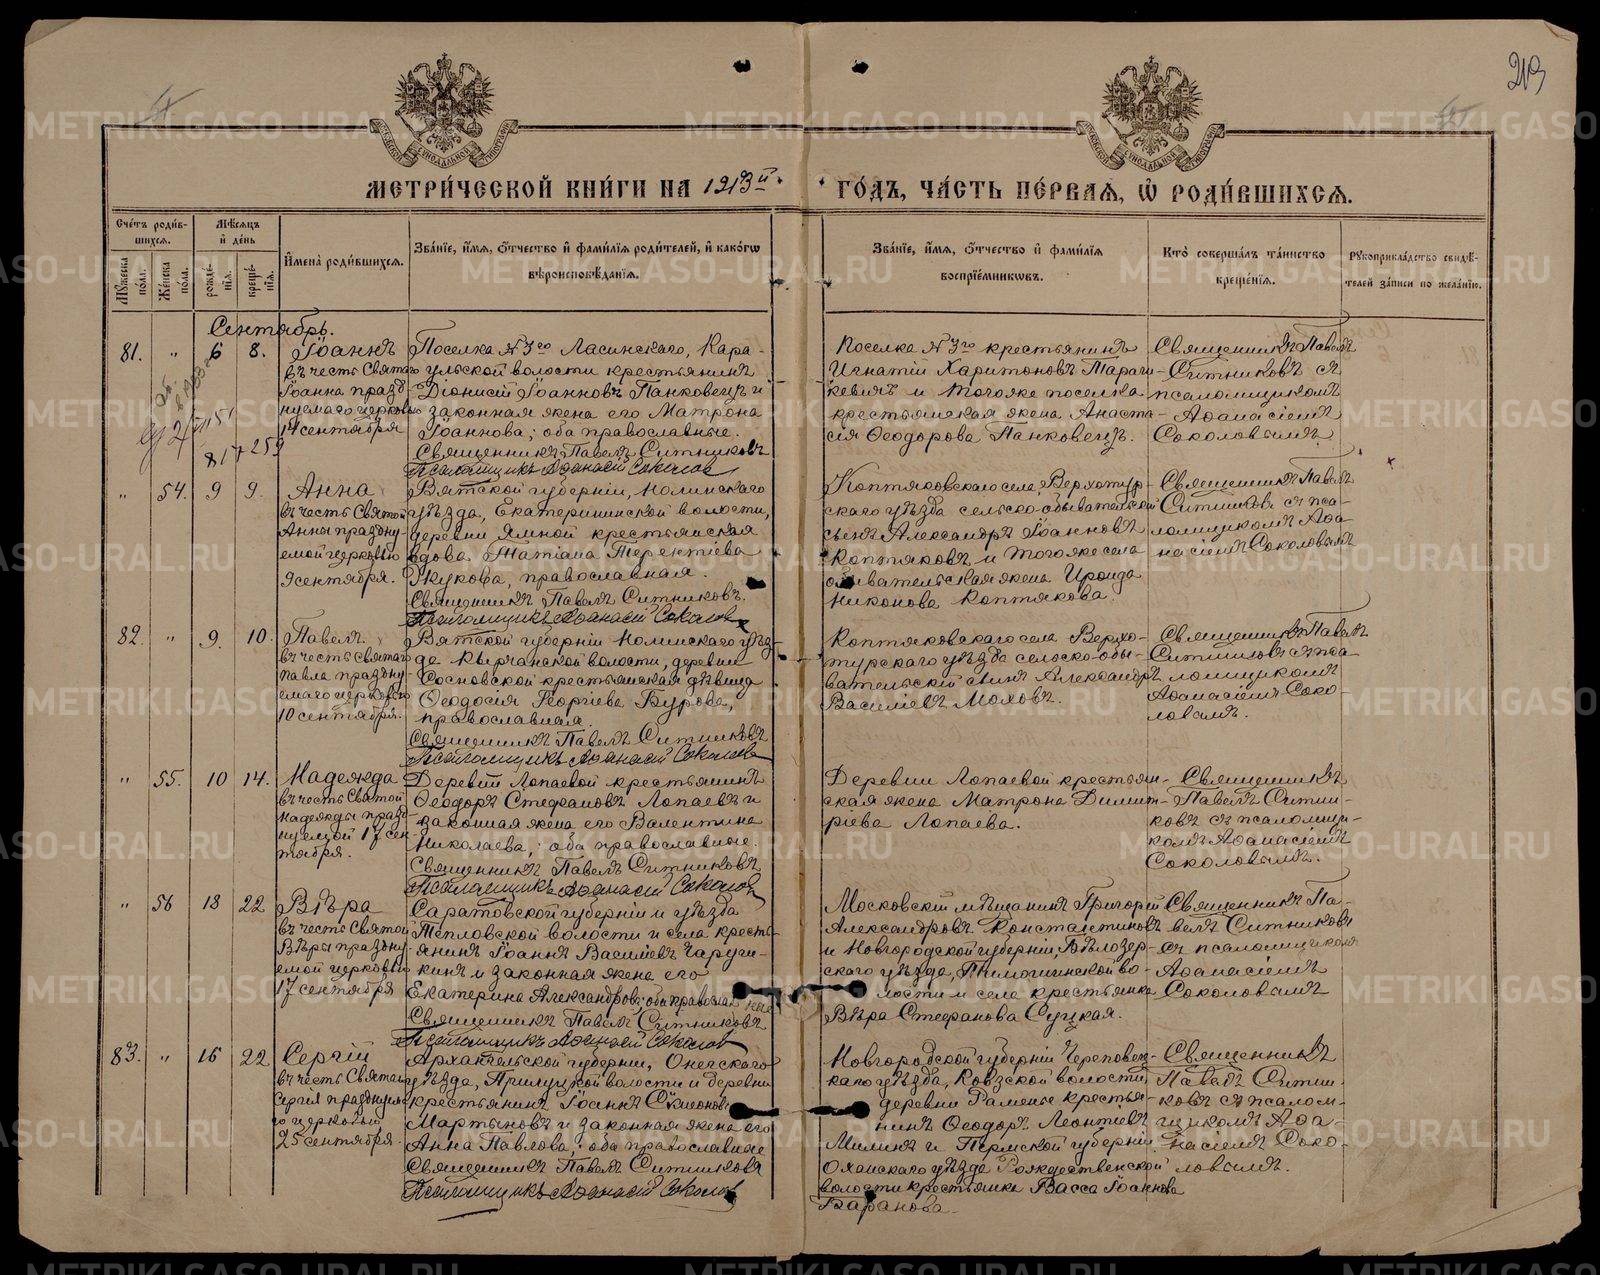 213
МЕТРИ́ЧЕСКОЙ КНИ́ГИ НА 1913й ГО́ДЪ, ЧА́СТЬ ПЕ́РВАЯ, Ѡ РОДИ́ВШИХСЯ.
Сче́тъ роди́вшихся.
Мѣ́сяцъ и҆ де́нь
Мꙋ́жеска по́ла.
Же́нска по́ла.
рожде́нїя.
креще́нїя.
И҆мена̀ роди́вшихся.
Зва́нїе, и҆́мя, ѻ҆́тчество и҆ фами́лїя роди́телей, и҆ како́гѡ
вѣроисповѣ́данїя.
Зва́нїе, и҆́мя, ѻ҆́тчество и҆ фами́лїя
воспрїе́мникѡвъ.
Кто̀ соверша́лъ та́инство
креще́нїя.
Рꙋкоприкла́дство свидѣ́-
телей за́писи по жела́нїю.
Сентябрь.
81. " 6 8.
Іоаннъ
въ честь Святаго
Іоанна празд
нуемаго церковью
14 сентября
Поселка №3го Ласинскаго, Кара-
ульской волости крестьянинъ
Діонисій Іоанновъ Панковецъ и
законная жена его Матрона
Іоаннова; оба православные.
Священникъ Павелъ Ситниковъ
Псаломщикъ Аѳанасій Соколов
Поселка №3го крестьянинъ
Игнатій Харитоновъ Тараги-
кевичъ и тогоже поселка
крестьянская жена Анаста-
сія Ѳеодорова Панковецъ.
Священникъ Павелъ
Ситниковъ съ
псаломщикомъ
Аѳанасіемъ
Соколовымъ
" 54. 9 9.
Анна
въ честь Святой
Анны праздну-
емой церковью
9 сентября.
Вятской губерніи, Нолинскаго
уѣзда, Екатерининской волости,
деревни Ямной крестьянская
вдова Татіана Терентіева
Жукова, православная.
Священникъ Павелъ Ситниковъ.
Псаломщикъ Аѳанасій Соколов
Коптяковскаго села, Верхотур-
скаго уѣзда сельско-обывательскій
сынъ Александръ Іоанновъ
Коптяковъ и тогоже села
обывательская жена Ироида
Никонова Коптякова.
Священникъ Павелъ
Ситниковъ съ пса-
ломщикомъ Аѳа-
насіемъ Соколовымъ
82. " 9. 10.
Павелъ
въ честь Святаго
Павла праздну
емаго церковью
10 сентября.
Вятской губерніи Нолинскаго уѣз-
да Кырчанской волости, деревни
Сосновской крестьянская дѣвица
Ѳеодосія Георгіева Бурова,
православная.
Священникъ Павелъ Ситниковъ
Псаломщикъ Аѳанасій Соколов
Коптяковскаго села Верхо-
турскаго уѣзда сельско-обы-
вательскій сынъ Александръ
Василіевъ Моховъ.
Священникъ Павелъ
Ситниковъ съ пса
ломщикомъ
Аѳанасіемъ Соко-
ловымъ.
" 55. 10 14.
Надежда
въ честь Святой
Надежды празд-
нуемой 17 сен
тября.
Деревни Лопаевой крестьянинъ
Ѳеодоръ Стефановъ Лопаевъ и
законная жена его Валентина
Николаева; оба православные.
Священникъ Павелъ Ситниковъ
Псаломщикъ Аѳанасій Соколов
Деревни Лопаевой крестьян-
ская жена Матрона Димит-
ріева Лопаева.
Священникъ
Павелъ Ситни-
ковъ съ псаломщи-
комъ Аѳанасіемъ
Соколовымъ.
" 56 18 22
Вѣра
въ честь Святой
Вѣры праздну
емой церковью
17 сентября
Саратовской губерніи и уѣзда
Тепловской волости и села кресть-
янинъ Іоаннъ Василіевъ Чаруш-
кинъ и законная жена его
Екатерина Александрова; оба православные
Священникъ Павелъ Ситниковъ
Псаломщикъ Аѳанасій Соколов
Московскій мѣщанинъ Григорій
Александровъ Константиновъ
и Новгородской губерніи, Бѣлозер-
скаго уѣзда, волости и села крестьянка
Вѣра Стефанова Суцкая.
Священникъ Па-
велъ Ситниковъ
съ псаломщикомъ
Аѳанасіемъ
Соколовымъ
83. " 16 22
Сергій
въ честь Святаго
Сергія празднуема
го церковью
25 сентября.
Архангельской губерніи, Онежскаго
уѣзда, Прилуцкой волости и деревни
крестьянинъ Іоаннъ Симеоновъ
Мартыновъ и законная жена его
Анна Павлова; оба православные
Священникъ Павелъ Ситниковъ
Псаломщикъ Аѳанасій Соколов
Новгородской губерніи Череповец-
каго уѣзда, Ковзской волости
деревни Раменье крестья-
нинъ Ѳеодоръ Леонтіевъ
Милинъ и Пермской губерніи
Оханскаго уѣзда Рождественской
волости крестьянка Васса Іоаннова
Баранова.
Священникъ
Павелъ Ситни-
ковъ съ псалом-
щикомъ Аѳа-
насіемъ Соко-
ловымъ.
METRIKI.GASO-URAL.RU